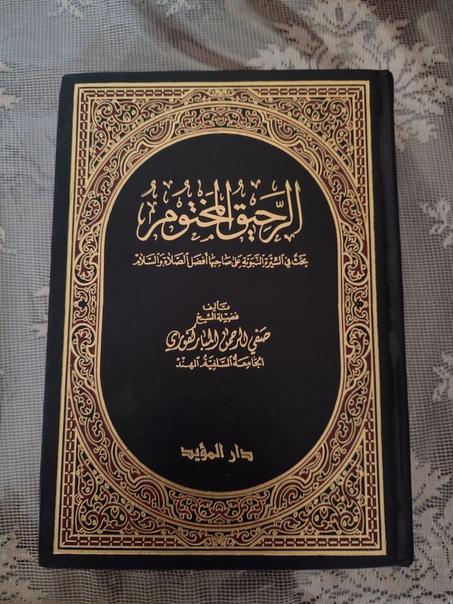 الرحيق المختوم
بحث في السيرة النبوية على صاحبها أفضل الصلاة والسلام
تأليف
فضيلة الشيخ
صفي الرحمن المباركفوري
الجامعة السلفية الهند
دار المؤيد